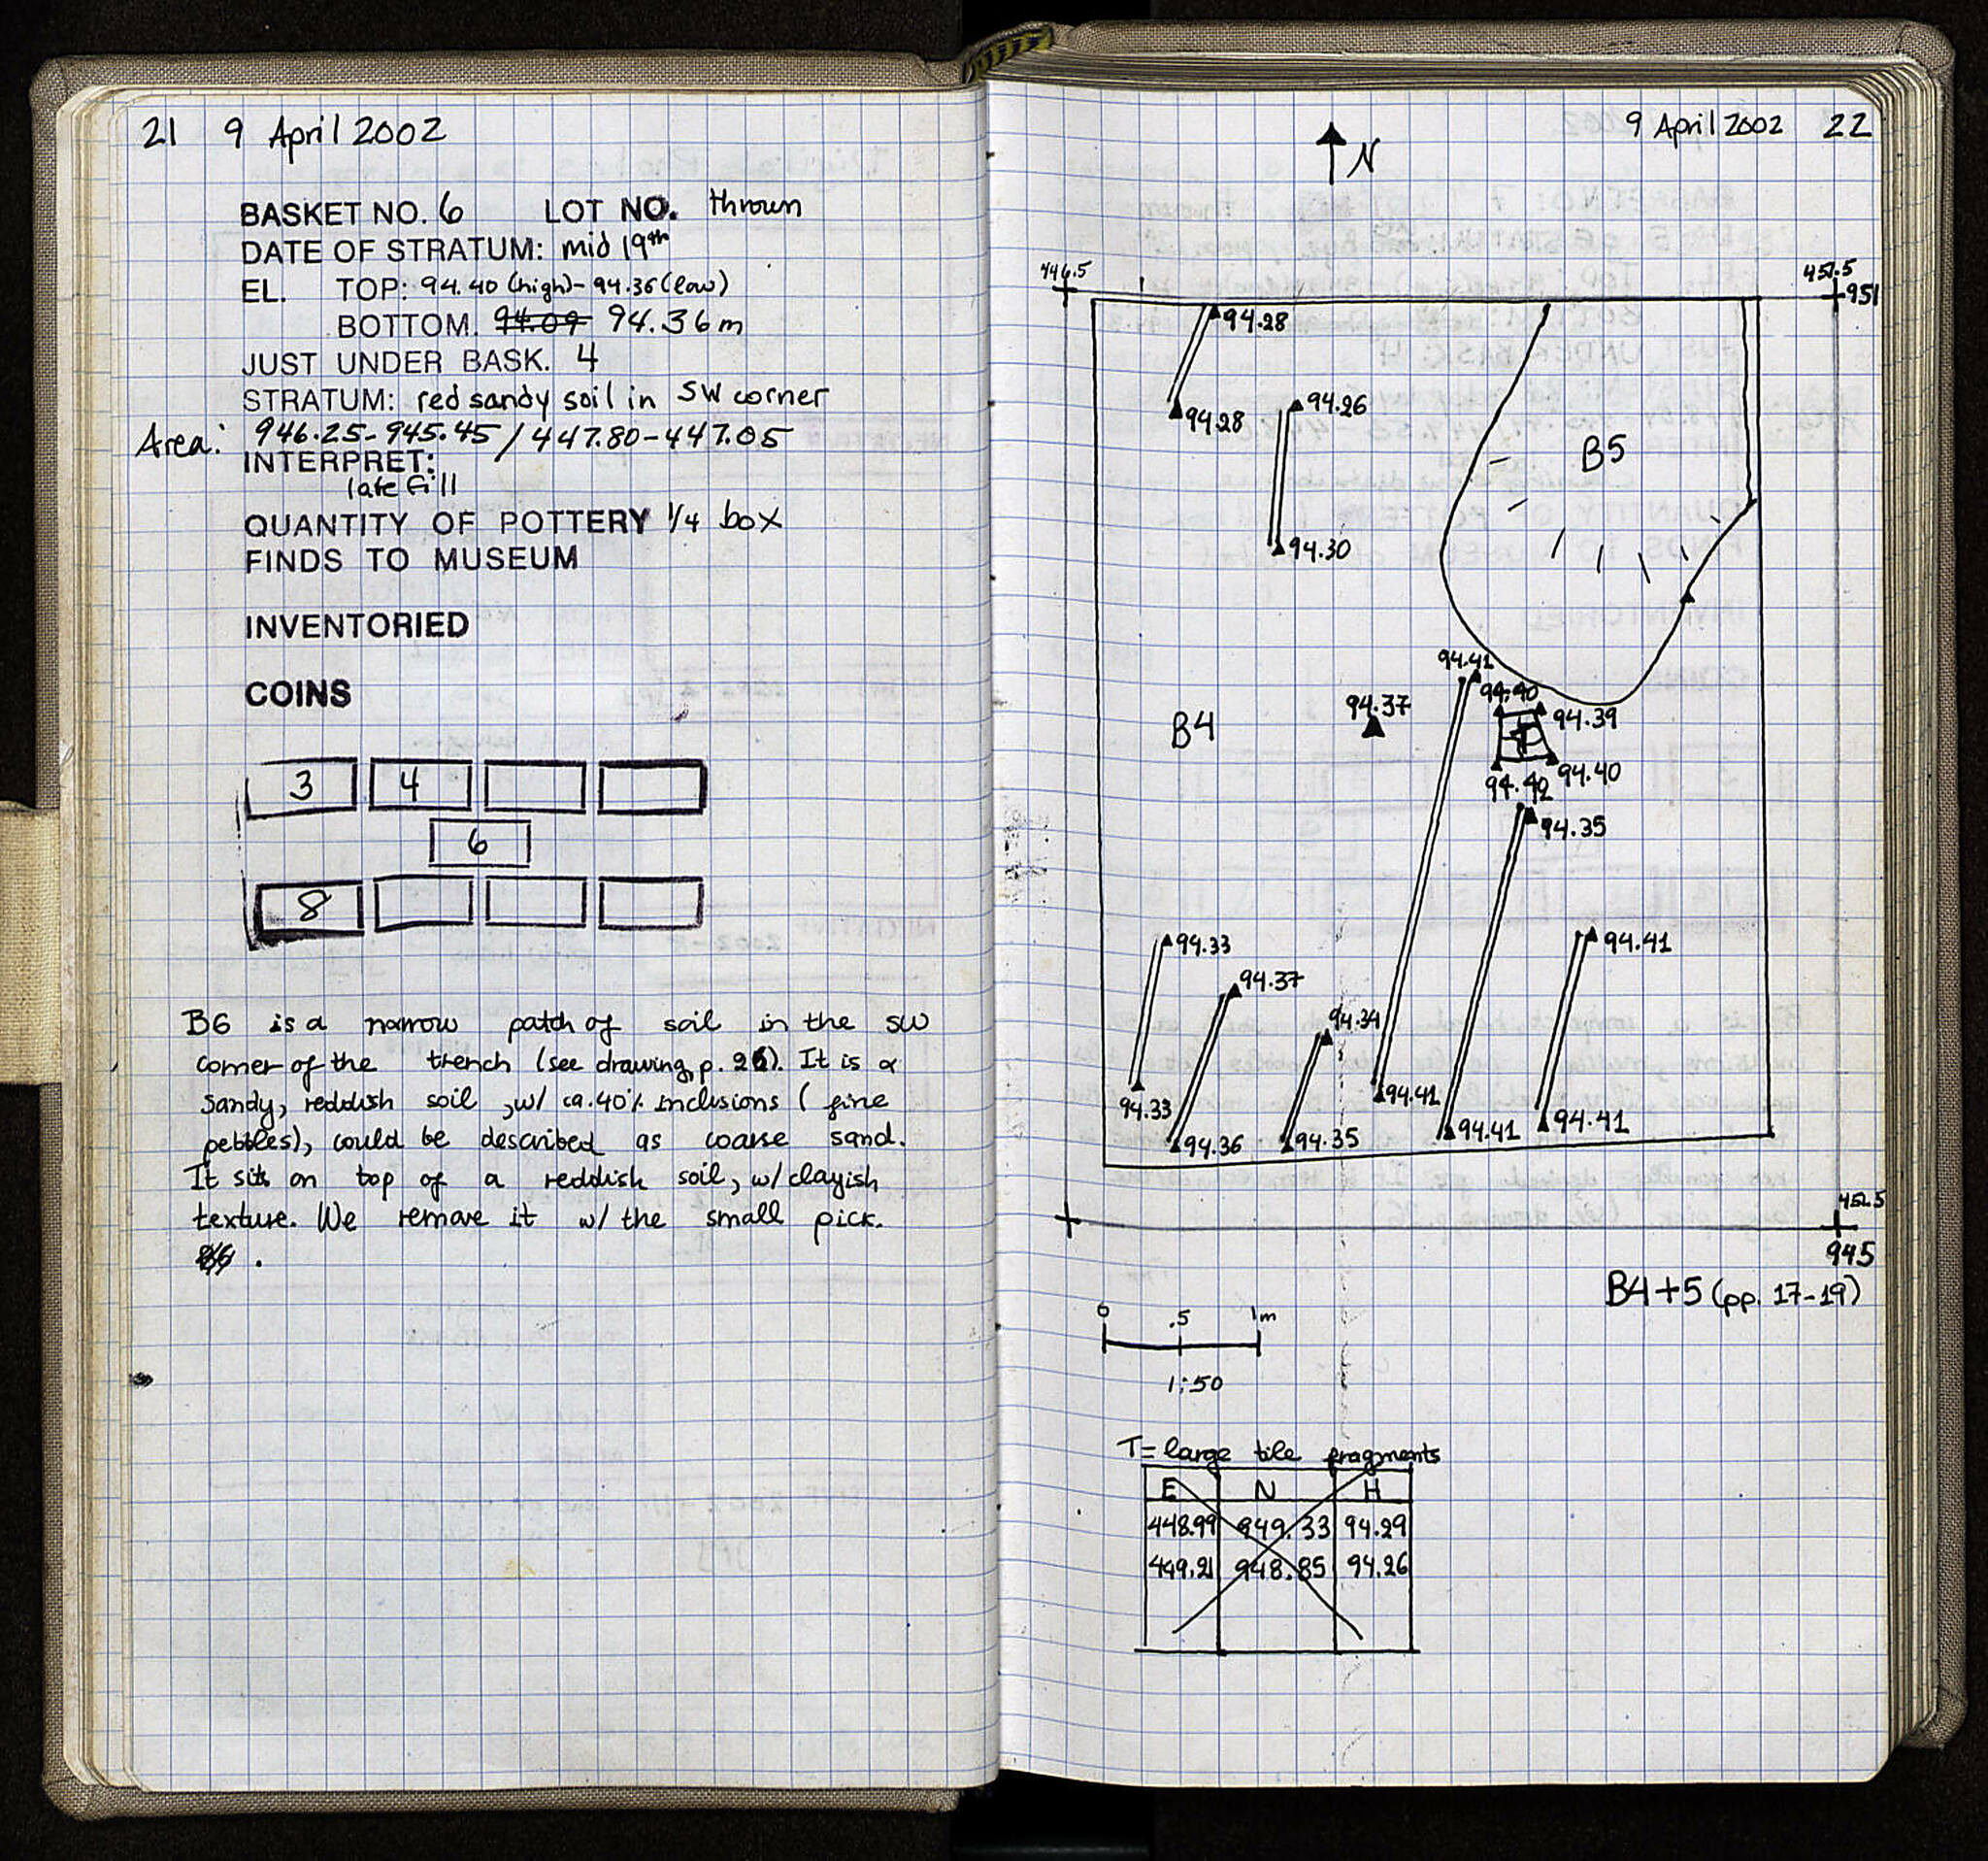 21 9 April 2002
BASKET NO. 6 LOT NO. thrown
DATE OF STRATUM: mid 19th
EL. TOP: 94.40 (high) - 94.36 (low)
BOTTOM. 94.09 94.36m
JUST UNDER BASK. 4
STRATUM: red sandy soil in SW corner
Area: 946.25-945.45 / 447.80-447.05
INTERPRET:
late fill
QUANTITY OF POTTERY 1/4 box
FINDS TO MUSEUM
INVENTORIED
COINS
3 4
6
8
B6 is a narrow patch of soil in the SW
corner of the trench (see drawing, p. 26). It is a
sandy, reddish soil, w/ ca. 40% inclusions (fine
pebbles), could be described as coarse sand.
It sits on top of a reddish soil, w/ clayish
texture. We remove it w/ the small pick.
9 April 2002 22
N
446.5
451.5
951
94.28
94.28
94.26
B5
94.30
94.41
94.40
94.37
94.39
B4
T
94.40
94.42
94.35
94.33
94.41
94.37
94.34
94.33
94.41
94.36
94.35
94.41
94.41
452.5
945
B4+5 (pp. 17-19)
0 .5 1m
1:50
T= large tile fragments
E N H
448.99 949.33 94.29
449.21 948.85 94.26